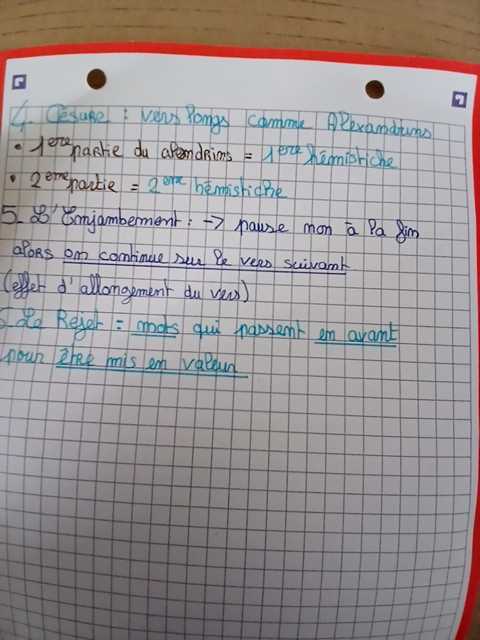 4. Césure : vers longs comme Alexandrins
• 1ere partie du alexandrins = 1ere hémistiche
• 2eme partie = 2eme hémistiche
5. L'Enjambement : → pause non à la fin
alors on continue sur le vers suivant
(effet d'allongement du vers)
. Le Rejet = mots qui passent en avant
pour être mis en valeur